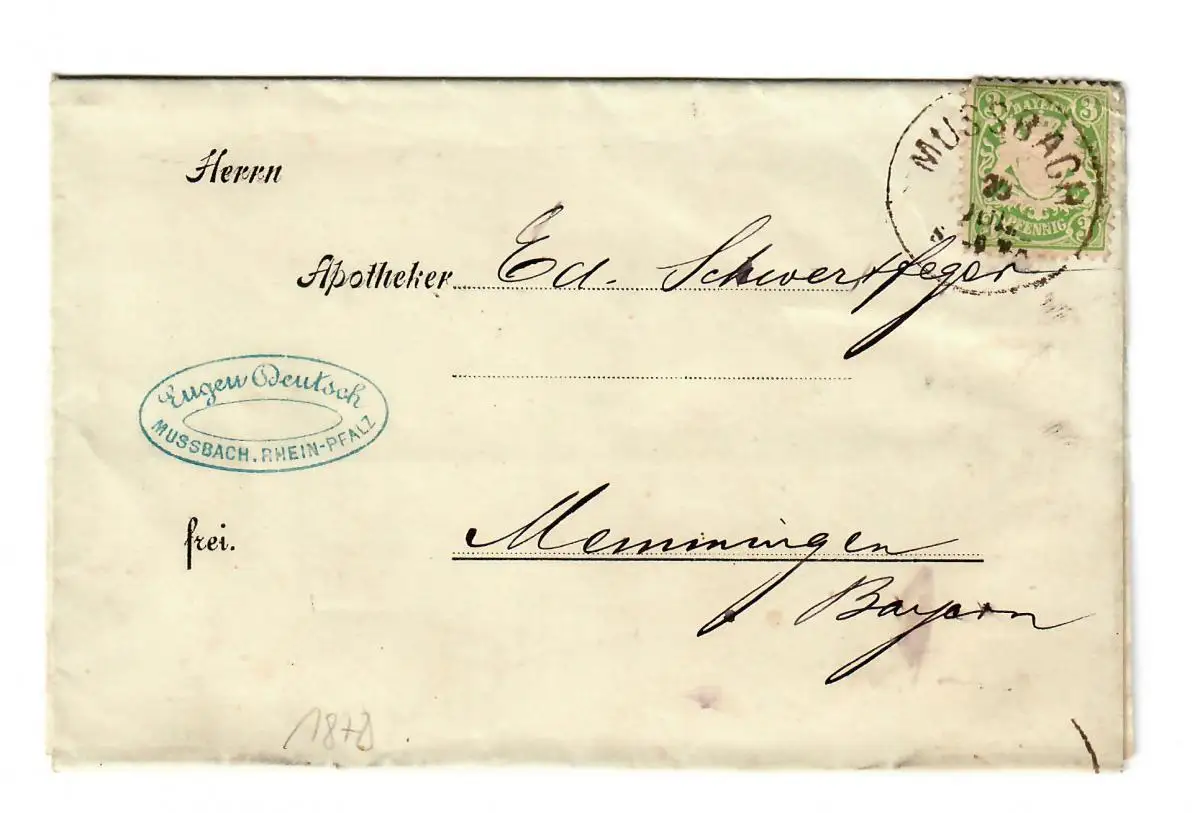 3 BAYERN 3
PFENNIG 3
MUSSBACH
JUL
Herrn
Apotheker Ed. Schwertfeger
Eugen Deutsch
MUSSBACH. RHEIN-PFALZ
frei.
Memmingen
Bayern
1878